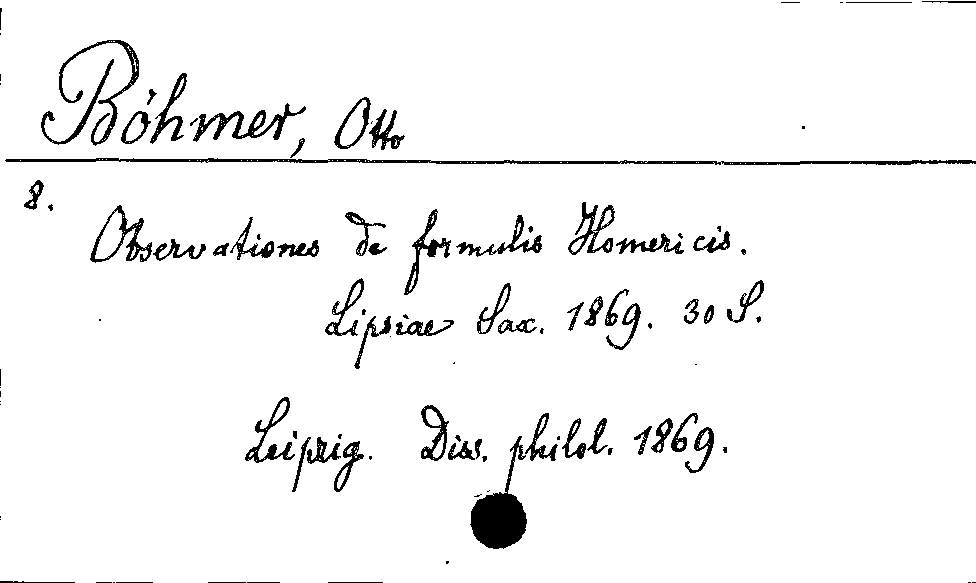 Böhmer, Otto
8.
Observationes de formulis Homericis.
Lipsiae Sax. 1869. 30 S.
Leipzig. Diss. philol. 1869.